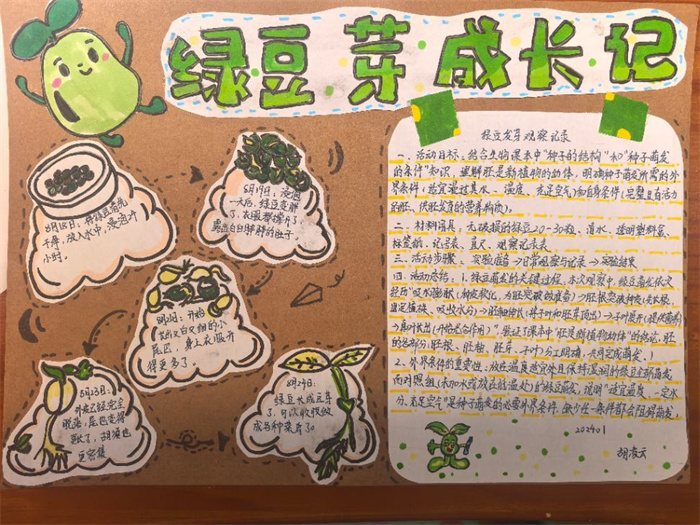 绿豆芽成长记
8月18日:将绿豆洗
干净,放入水中,浸泡7
小时。
8月19日:浸泡
一天后,绿豆变胖
了,衣服都撑开了
露出白白胖胖的肚子
开始
长出又白又细的小
尾巴,身上衣服开
得更多了。
8月23日:
外衣已经完全
脱落,尾巴变得
更长了,胡须也
更密集
8月24日:
绿豆长成豆芽
了,可以收获做
成各种菜肴了。
绿豆发芽观察记录
一、活动目标:结合生物课本中“种子的结构”和“种子萌发
的条件”知识,理解胚是新植物的幼体,明确种子萌发所需的外
界条件(适宜温度、充足空气)和自身条件(完整且有活力
的胚、供胚发育的营养物质)。
二、材料用具:无破损的绿豆20-30粒、清水、透明塑料盒、
标签纸、记录表、直尺、观察记录表
三、活动步骤:实验准备→日常观察与记录→实验结束
四、活动总结:1.绿豆萌发的关键过程:本次观察中,绿豆萌发依次
经历“吸水膨胀(种皮软化,为胚突破做准备)→胚根突破种皮(先长根,
固定植株、吸收水分)→胚轴伸长(将子叶和胚芽顶出)→子叶展开
”,验证了课本中“胚是新植物幼体”的知识,胚
的各部分(胚根、胚轴、胚芽、子叶)分工明确,共同完成萌发。
2.外界条件的重要性:放在温度适宜处且保持湿润的绿豆全部萌发,
而对照组(未加水或放在低温处)的绿豆未萌发,说明“适宜温度、一定水
分、充足空气”是种子萌发的必要外界条件,缺少任一条件都会阻碍萌发。
胡浚天